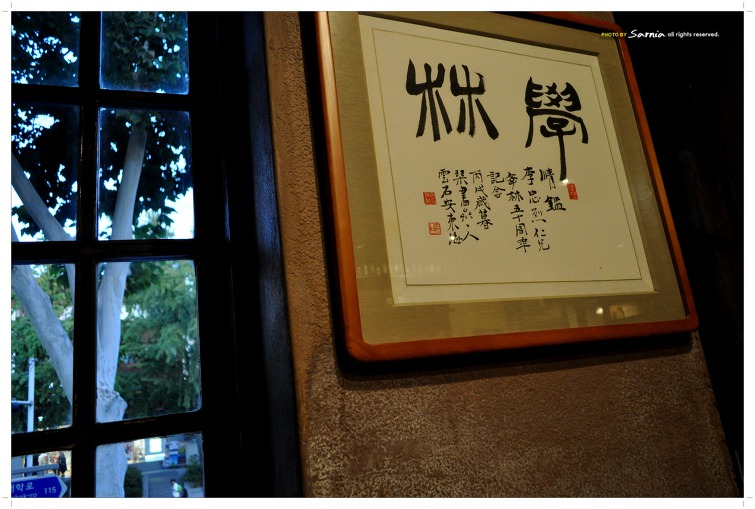 PHOTO BY Sarnia all rights reserved.
學林
清鑑
李忠烈仁兄
學林五十周年
記念
丙戌歲暮
琴書人
雲石安東海
학로
115